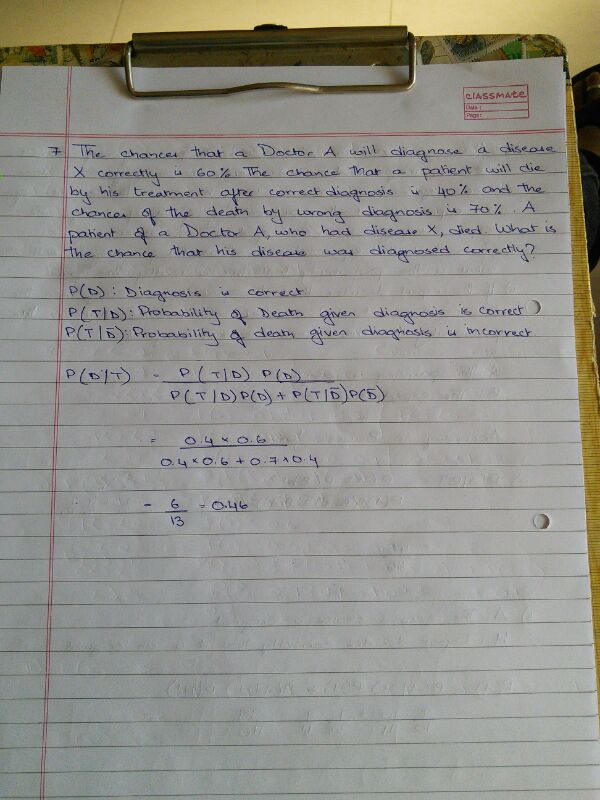 CLASSMATE
Date :
Page :
7 The chances that a Doctor A will diagnose a disease
X correctly is 60%. The chance that a patient will die
by his treatment after correct diagnosis is 40% and the
chances of the death by wrong diagnosis is 70%. A
patient of a Doctor A, who had disease X, died. What is
the chance that his disease was diagnosed correctly?
P(D) : Diagnosis is correct.
P(T|D) : Probability of Death given diagnosis is correct
P(T|D̄): Probability of death given diagnosis is incorrect.
P(D|T) = P(T|D) P(D)
P(T|D)P(D) + P(T|D̄)P(D̄)
= 0.4 x 0.6
0.4 x 0.6 + 0.7 x 0.4
= 6 = 0.46
13